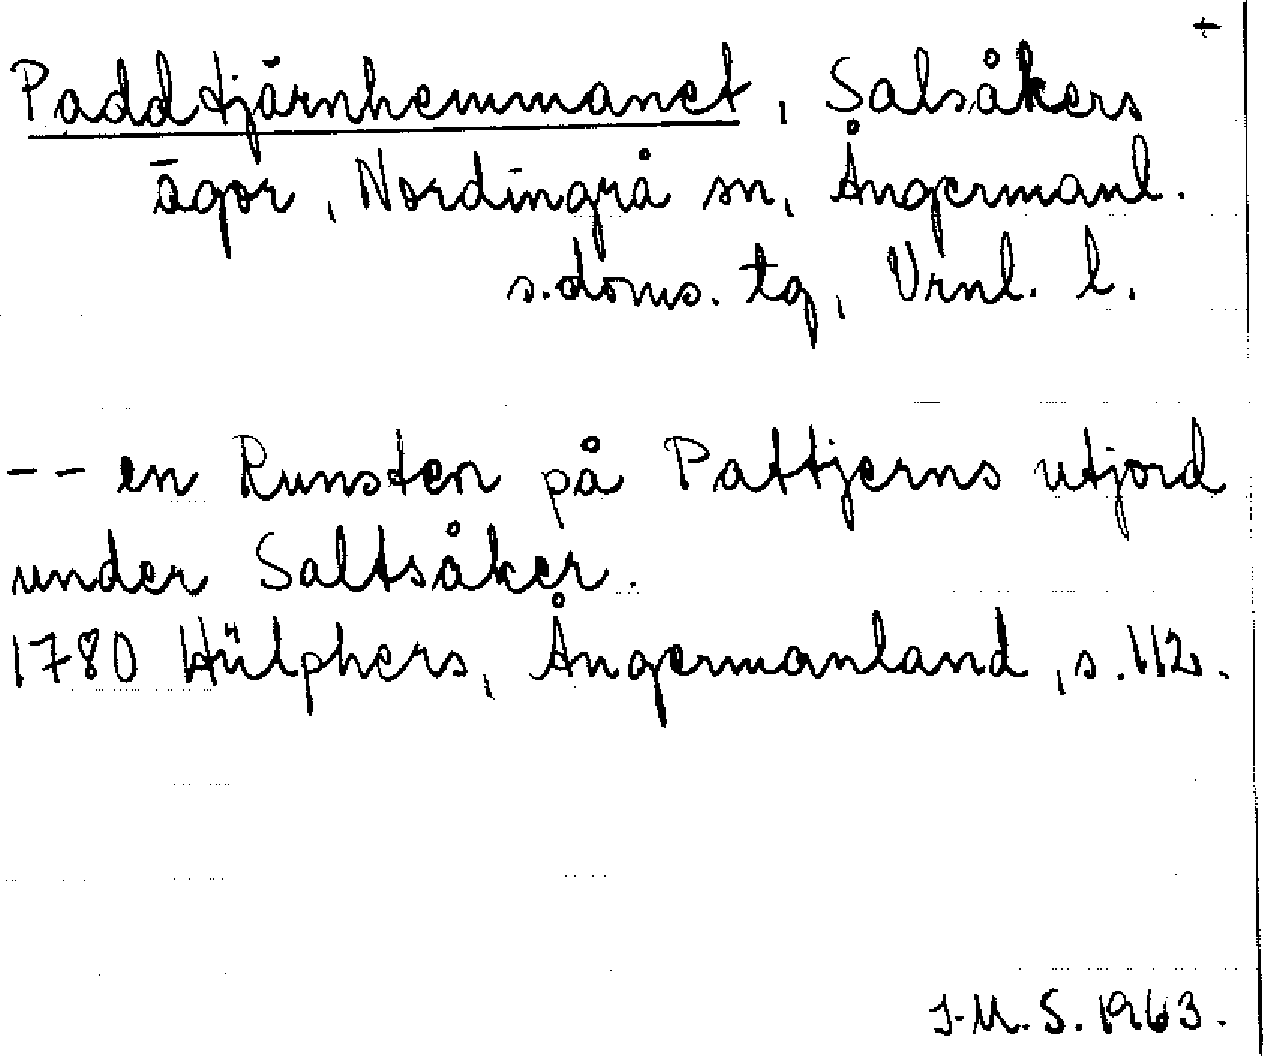 +
Paddtjärnhemmanet, Salsåkers
ägor, Nordingrå sn, Ångermanl.
s.doms. tg, Vrnl. l.
-- en Runsten på Pattjerns utjord
under Saltsåker.
1780 Hülphers, Ångermanland, s. 112.
I-M. S. 1963.